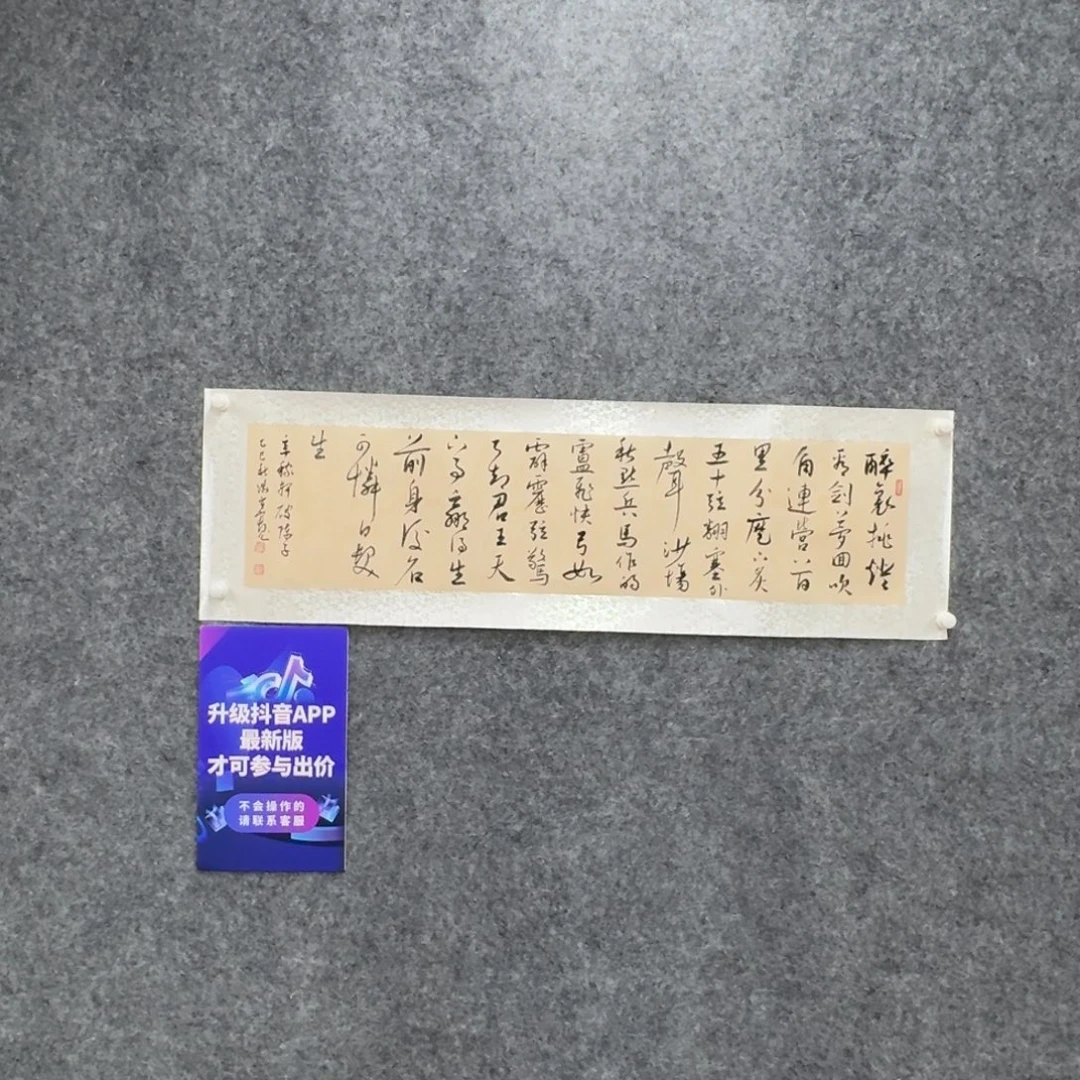 醉裏挑燈
看劍夢回吹
角連營八百
里分麾下炙
五十弦翻塞外
聲沙場
秋點兵馬作的
盧飛快弓如
霹靂弦驚
了却君王天
下事贏得生
前身後名
可憐白髮
生
辛稼軒破陣子
乙巳秋
升级抖音APP
最新版
才可参与出价
不会操作的
请联系客服